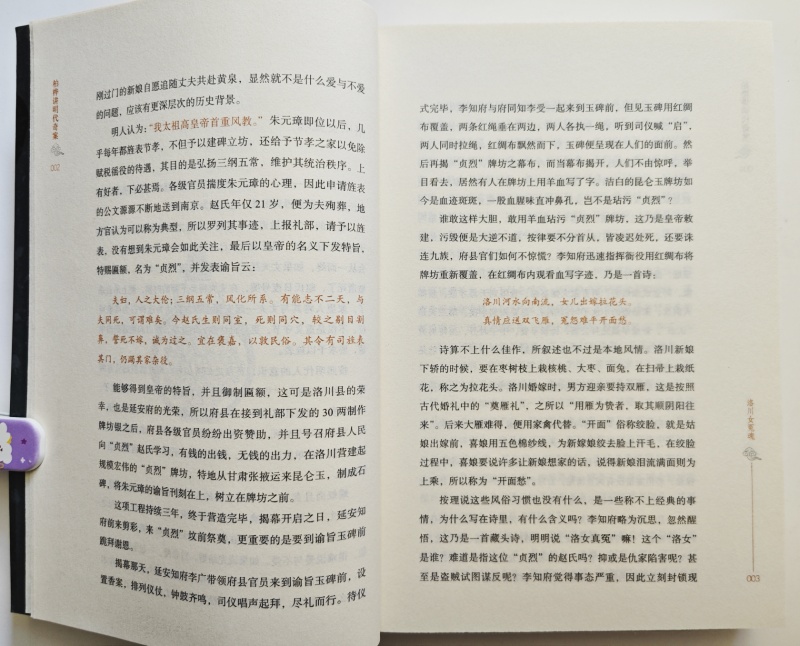 柏桦讲明代奇案
002
刚过门的新娘自愿追随丈夫共赴黄泉，显然就不是什么爱与不爱
的问题，应该有更深层次的历史背景。
明人认为：“我太祖高皇帝首重风教。”朱元璋即位以后，几
乎每年都旌表节孝，不但予以建碑立坊，还给予节孝之家以免除
赋税徭役的待遇，其目的是弘扬三纲五常，维护其统治秩序。上
有好者，下必甚焉。各级官员揣度朱元璋的心理，因此申请旌表
的公文源源不断地送到南京。赵氏年仅 21 岁，便为夫殉葬，地
方官认为可以称为典型，所以罗列其事迹，上报礼部，请予以旌
表，没有想到朱元璋会如此关注，最后以皇帝的名义下发特旨，
特赐匾额，名为“贞烈”，并发表谕旨云：
夫妇，人之大伦；三纲五常，风化所系。有能志不二天，与
夫同死，可谓难矣。今赵氏生则同室，死则同穴，较之剔目割
鼻，誓死不嫁，诚为过之。宜在褒嘉，以敦民俗。其令有司旌表
其门，仍蠲其家杂役。
能够得到皇帝的特旨，并且御制匾额，这可是洛川县的荣
幸，也是延安府的光荣，所以府县在接到礼部下发的 30 两制作
牌坊银之后，府县各级官员纷纷出资赞助，并且号召府县人民
向“贞烈”赵氏学习，有钱的出钱，无钱的出力，在洛川营建起
规模宏伟的“贞烈”牌坊，特地从甘肃张掖运来昆仑玉，制成石
碑，将朱元璋的谕旨刊刻在上，树立在牌坊之前。
这项工程持续三年，终于营造完毕，揭幕开启之日，延安知
府前来剪彩，来“贞烈”坟前祭奠，更重要的是要到谕旨玉碑前
跪拜谢恩。
揭幕那天，延安知府李广带领府县官员来到谕旨玉碑前，设
置香案，排列仪仗，钟鼓齐鸣，司仪唱声起拜，尽礼而行。待仪
式完毕，李知府与府同知李受一起来到玉碑前，但见玉碑用红绸
布覆盖，两条红绳垂在两边，两人各执一绳，听到司仪喊“启”，
两人同时拉绳，红绸布飘然而下，玉碑便呈现在人们的面前。然
后再揭“贞烈”牌坊之幕布，而当幕布揭开，人们不由惊呼，举
目看去，居然有人在牌坊上用羊血写了字。洁白的昆仑玉牌坊如
今是血迹斑斑，一股血腥味直冲鼻孔，岂不是玷污“贞烈”？
谁敢这样大胆，敢用羊血玷污“贞烈”牌坊，这乃是皇帝敕
建，污毁便是大逆不道，按律要不分首从，皆凌迟处死，还要诛
连九族，府县官们如何不惊慌？李知府迅速指挥衙役用红绸布将
牌坊重新覆盖，在红绸布内观看血写字迹，乃是一首诗：
洛川河水向南流，女儿出嫁拉花头。
真情应送双飞雁，冤愁难平开面愁。
诗算不上什么佳作，所叙述也不过是本地风情。洛川新娘
下轿的时候，要在枣树枝上栽核桃、大枣、面兔，在扫帚上栽纸
花，称之为拉花头。洛川婚嫁时，男方迎亲要持双雁，这是按照
古代婚礼中的“奠雁礼”，之所以“用雁为贽者，取其顺阴阳往
来”。后来大雁难得，便用家禽代替。“开面”俗称绞脸，就是姑
娘出嫁前，喜娘用五色棉纱线，为新嫁娘绞去脸上汗毛，在绞脸
过程中，喜娘要说许多让新娘想家的话，说得新娘泪流满面则为
上乘，所以称为“开面愁”。
按理说这些风俗习惯也没有什么，是一些称不上经典的事
情，为什么写在诗里，有什么含义吗？李知府略为沉思，忽然醒
悟，这乃是一首藏头诗，明明说“洛女真冤”嘛！这个“洛女”
是谁？难道是指这位“贞烈”的赵氏吗？抑或是仇家陷害呢？甚
至是盗贼试图谋反呢？李知府觉得事态严重，因此立刻封锁现
洛川女冤魂
003